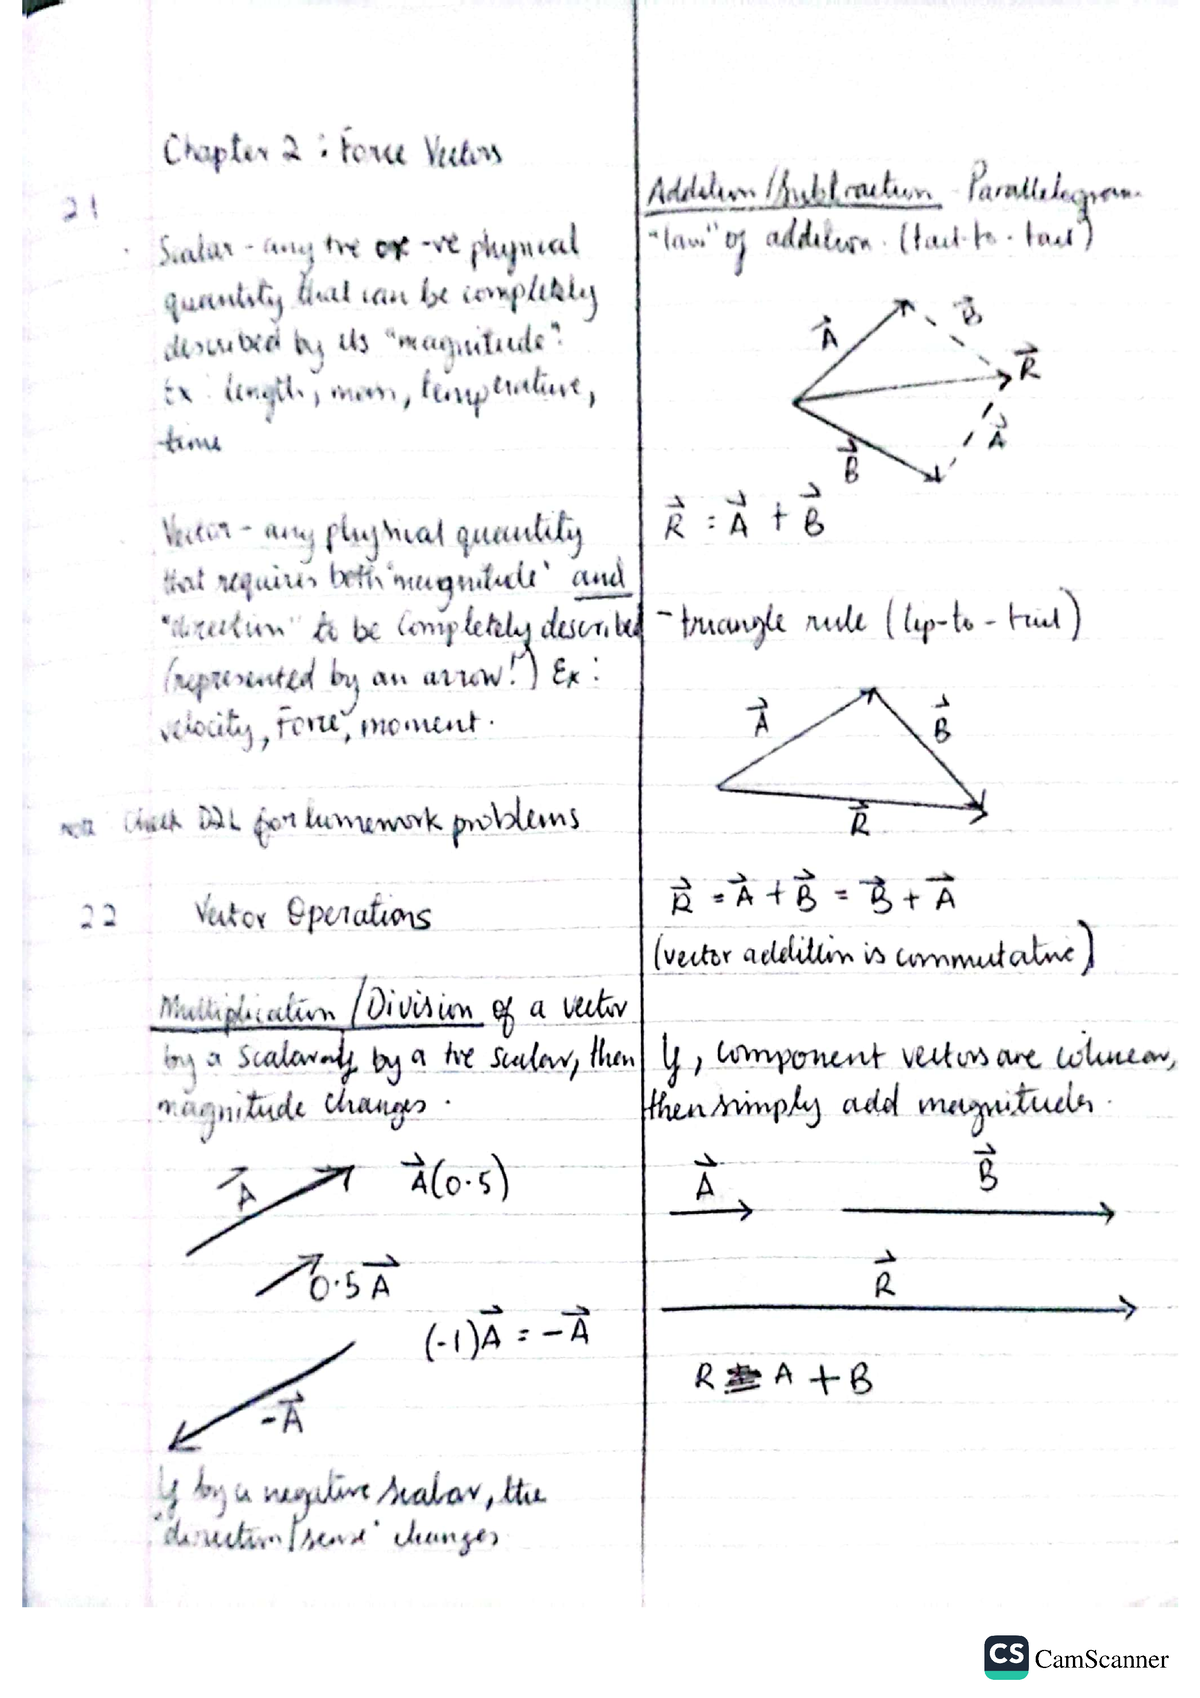 Chapter 2 : Force Vectors
2.1
Scalar - any +ve or -ve physical
quantity that can be completely
described by its "magnitude".
Ex : length, mass, temperature,
time
Vector - any physical quantity
that requires both "magnitude" and
"direction" to be completely described
(represented by an arrow!) Ex :
velocity, Force, moment.
note Check D2L for homework problems
2.2 Vector Operations
Multiplication / Division of a vector
by a scalar by a +ve scalar, then
magnitude changes.
A A(0.5)
0.5 A
(-1)A = -A
-A
If by a negative scalar, the
"direction/sense" changes
Addition/Subtraction - Parallelogram
"law" of addition. (tail-to-tail)
A B
R
B A
R = A + B
- triangle rule (tip-to-tail)
A B
R
R = A + B = B + A
(vector addition is commutative)
If, component vectors are colinear,
then simply add magnitudes.
A B
R
R = A + B
CS CamScanner